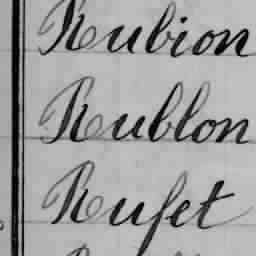 Rubion
Rublon
Rufet